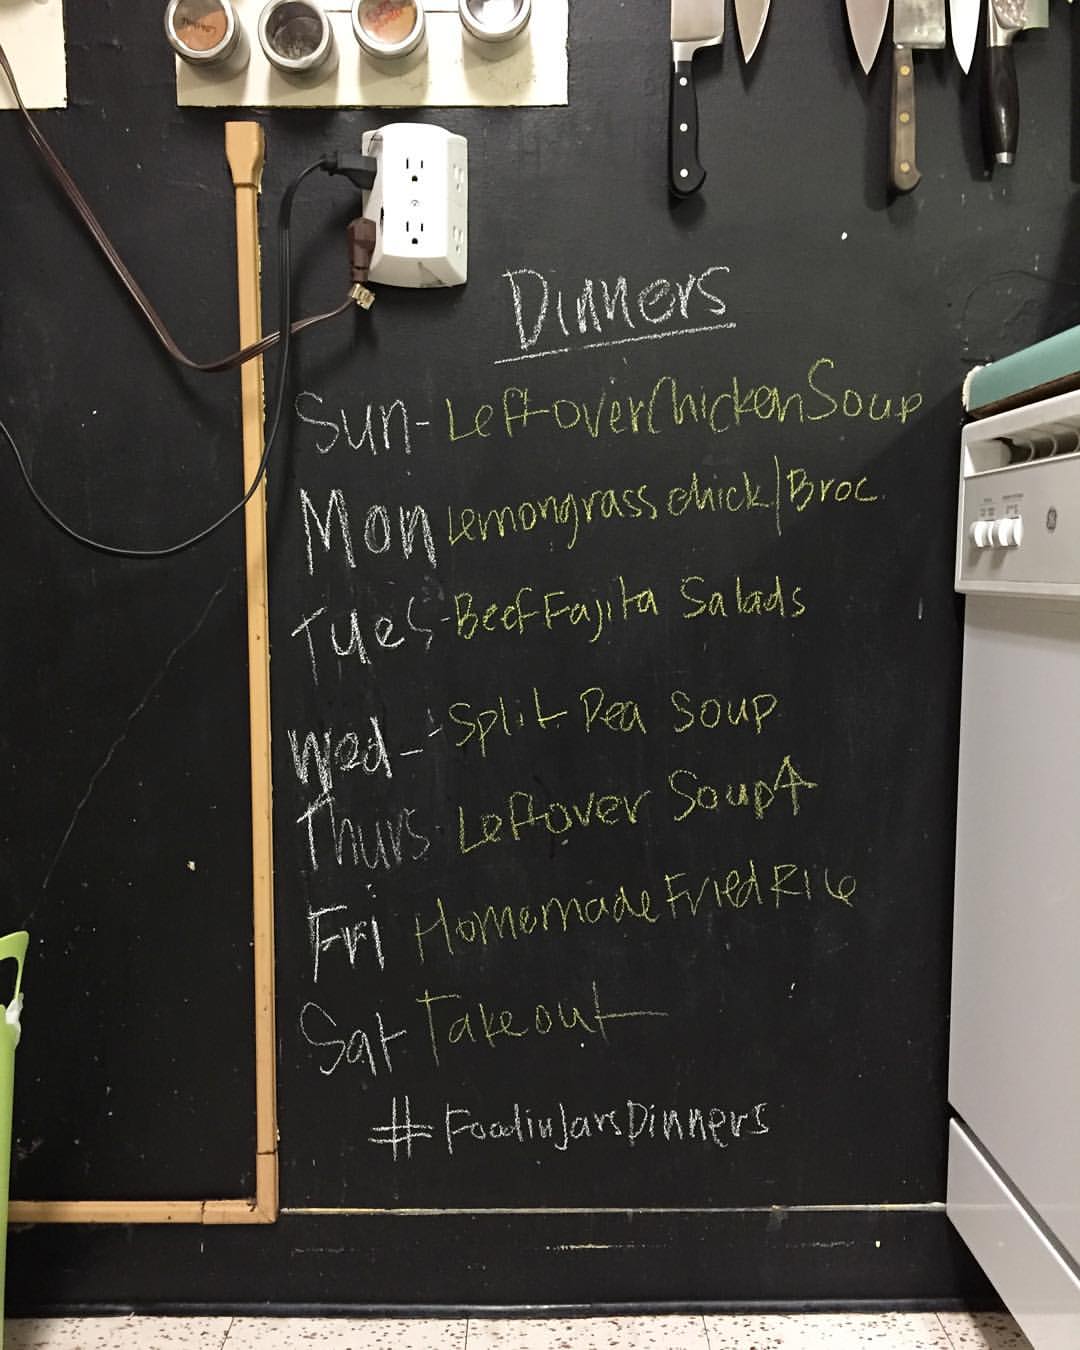 Dinners
Sun- Leftover Chicken Soup
Mon Lemongrass chick/Broc.
Tues-Beef Fajita Salads
Wed--Split Pea Soup
Thurs Leftover Soup↑
Fri Homemade Fried Rice
Sat Takeout
#FoodinJarsDinners